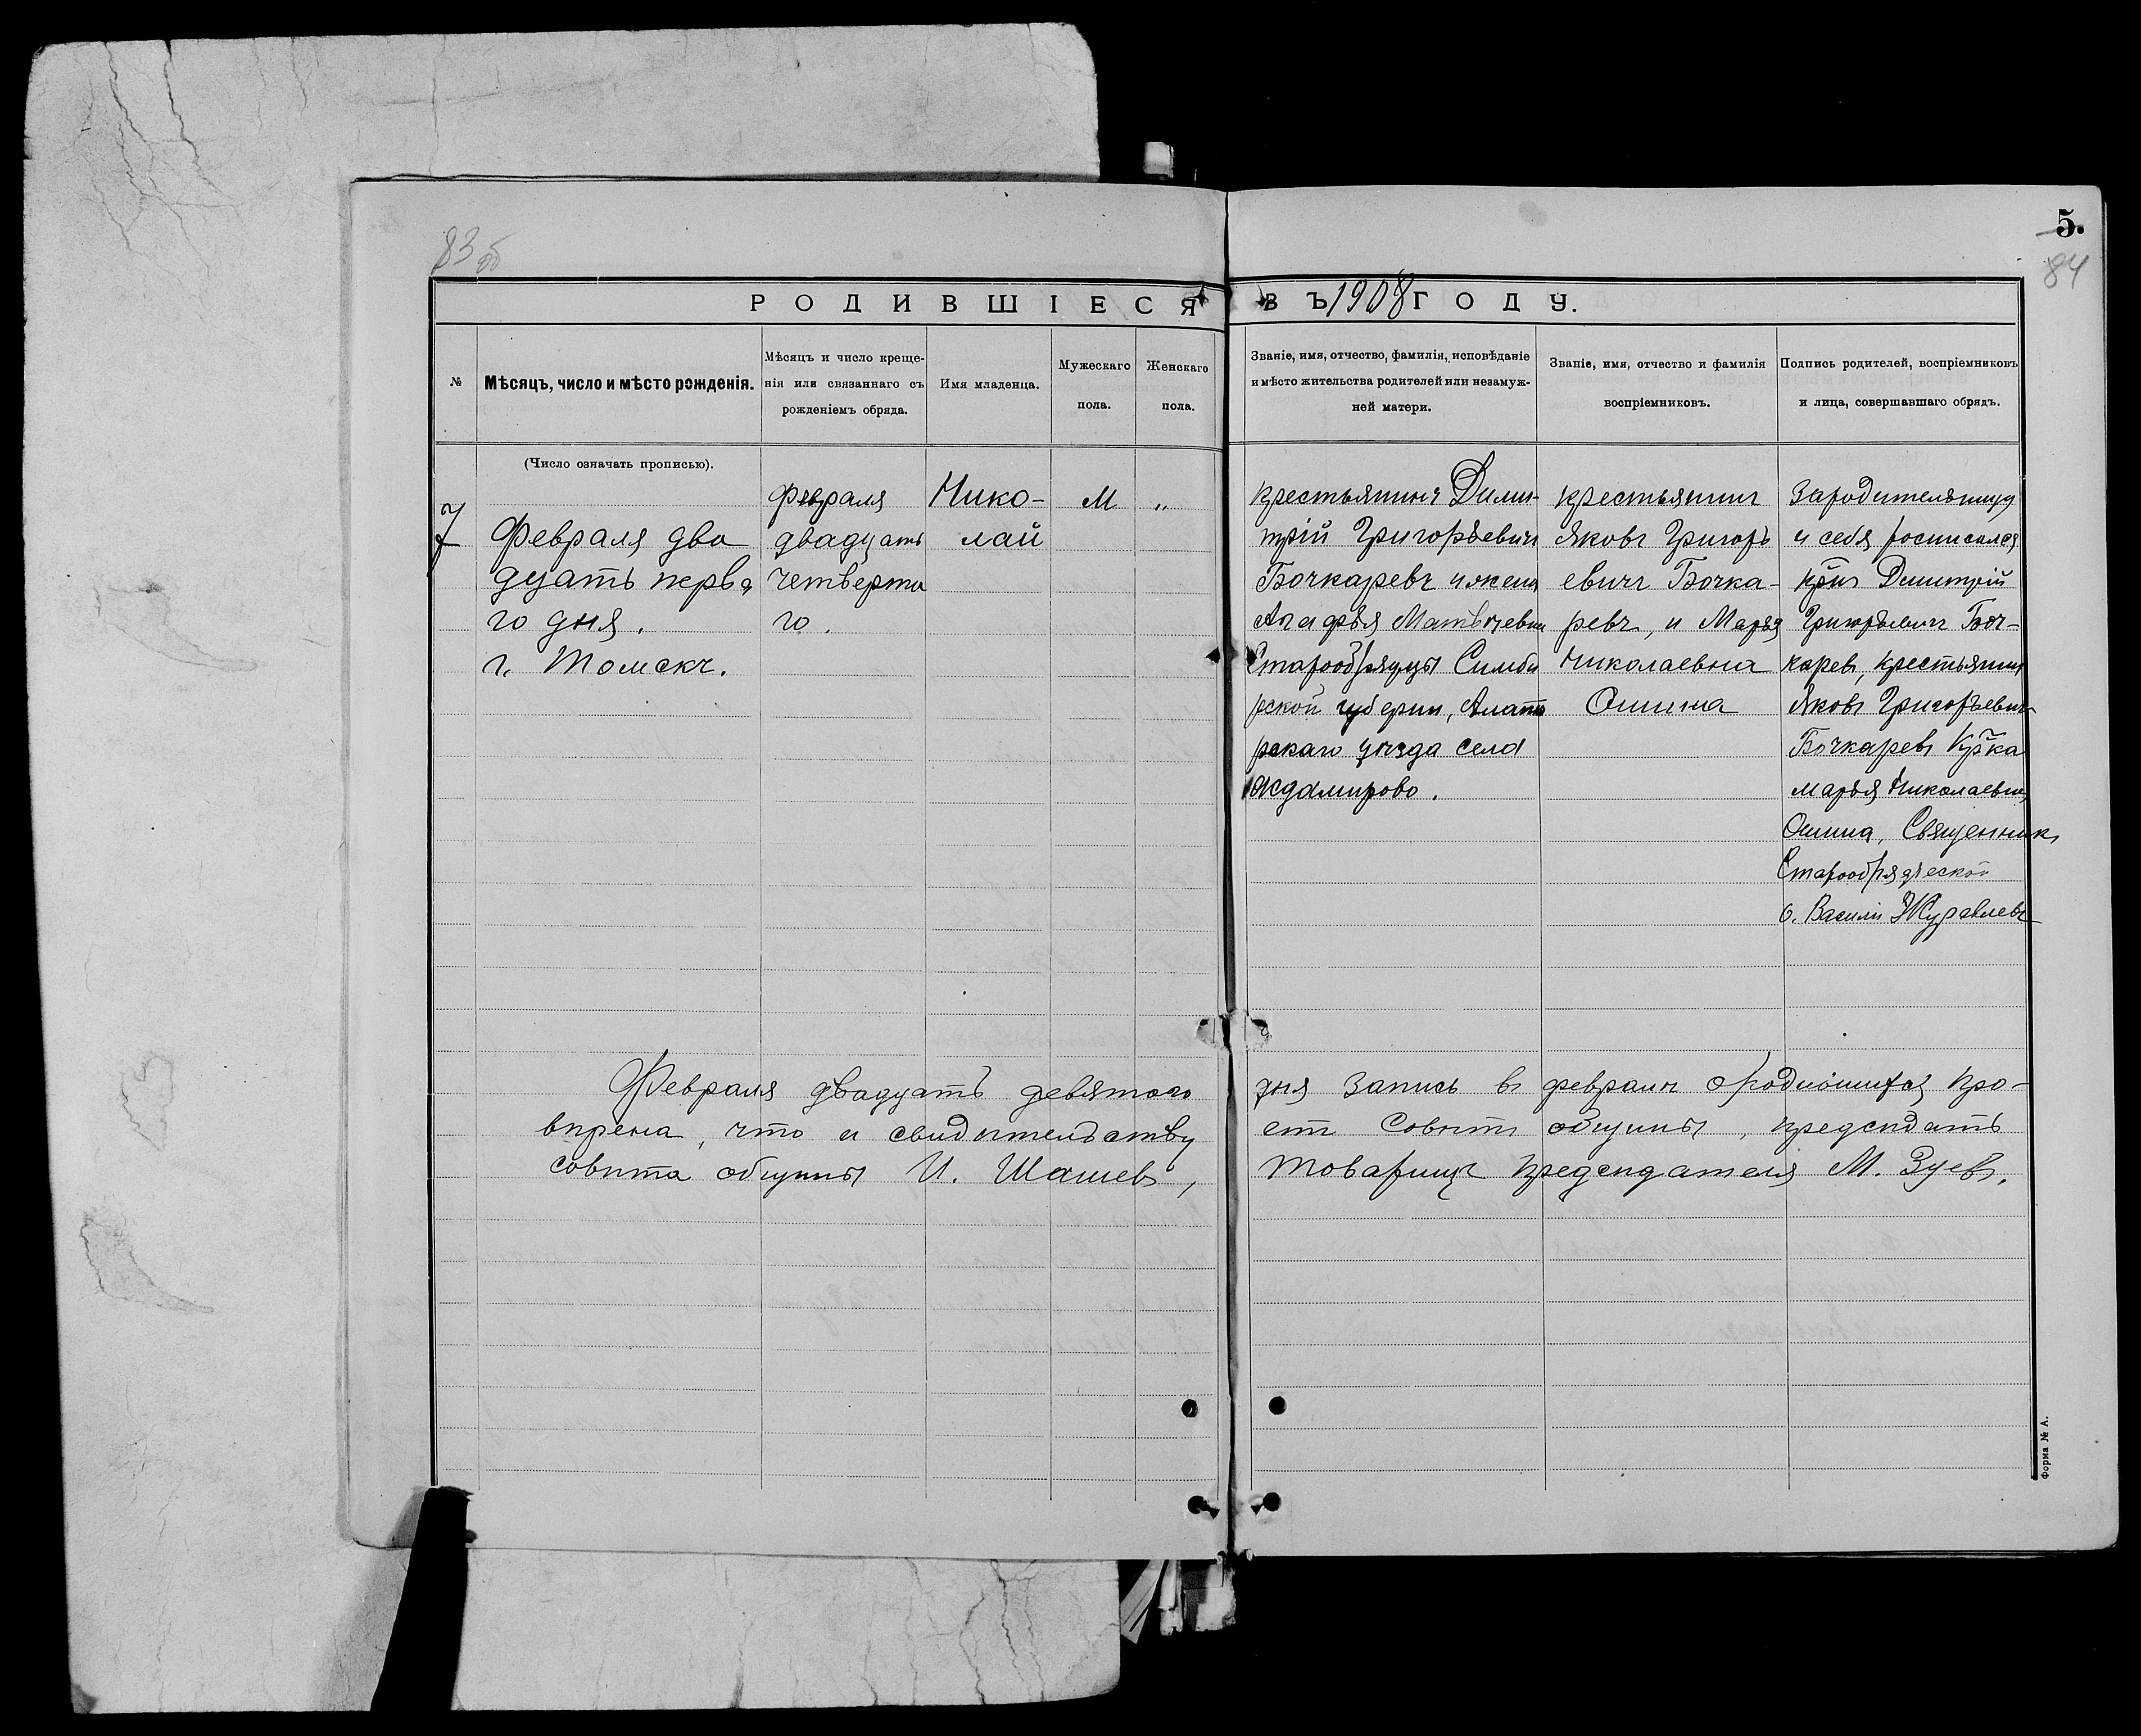 83 об
5.
84
РОДИВШІЕСЯ ВЪ 1908 ГОДУ.
№
Мѣсяцъ, число и мѣсто рожденія.
Мѣсяцъ и число креще-
нія или связаннаго съ
рожденіемъ обряда.
Имя младенца.
Мужескаго
пола.
Женскаго
пола.
Званіе, имя, отчество, фамилія, исповѣданіе
и мѣсто жительства родителей или незамуж-
ней матери.
Званіе, имя, отчество и фамилія
воспріемниковъ.
Подпись родителей, воспріемниковъ
и лица, совершавшаго обрядъ.
(Число означать прописью).
7
Февраля два
дцать перва
го дня.
г. Томскъ.
Февраля
двадцать
четверта
го.
Нико-
лай
М
„
крестьянинъ Дими-
трій Григорьевичъ
Бочкаревъ и жена
Агафья Матвѣевна
Старообрядцы Симби
рской губерии, Алаты
рскаго уѣзда села
Ждамирово.
крестьянинъ
Яковъ Григорь
евичъ Бочка-
ревъ, и Марья
Николаевна
Ошина
За родительницу
и себя росписался
Димитрій
Григорьевичъ Боч-
каревъ, крестьянинъ
Яковъ Григорьевичъ
Бочкаревъ
Марья Николаевна
Ошина, Священникъ
Старообрядческой
о. Василій Журавлевъ
Февраля двадцать девятого дня запись въ февралѣ о родившихся про-
вѣрена, что и свидѣтельству етъ Совѣтъ общины, предсѣдатъ
совѣта общины И. Шашевъ, Товарищъ предсѣдателя М. Зуевъ.
Форма № А.